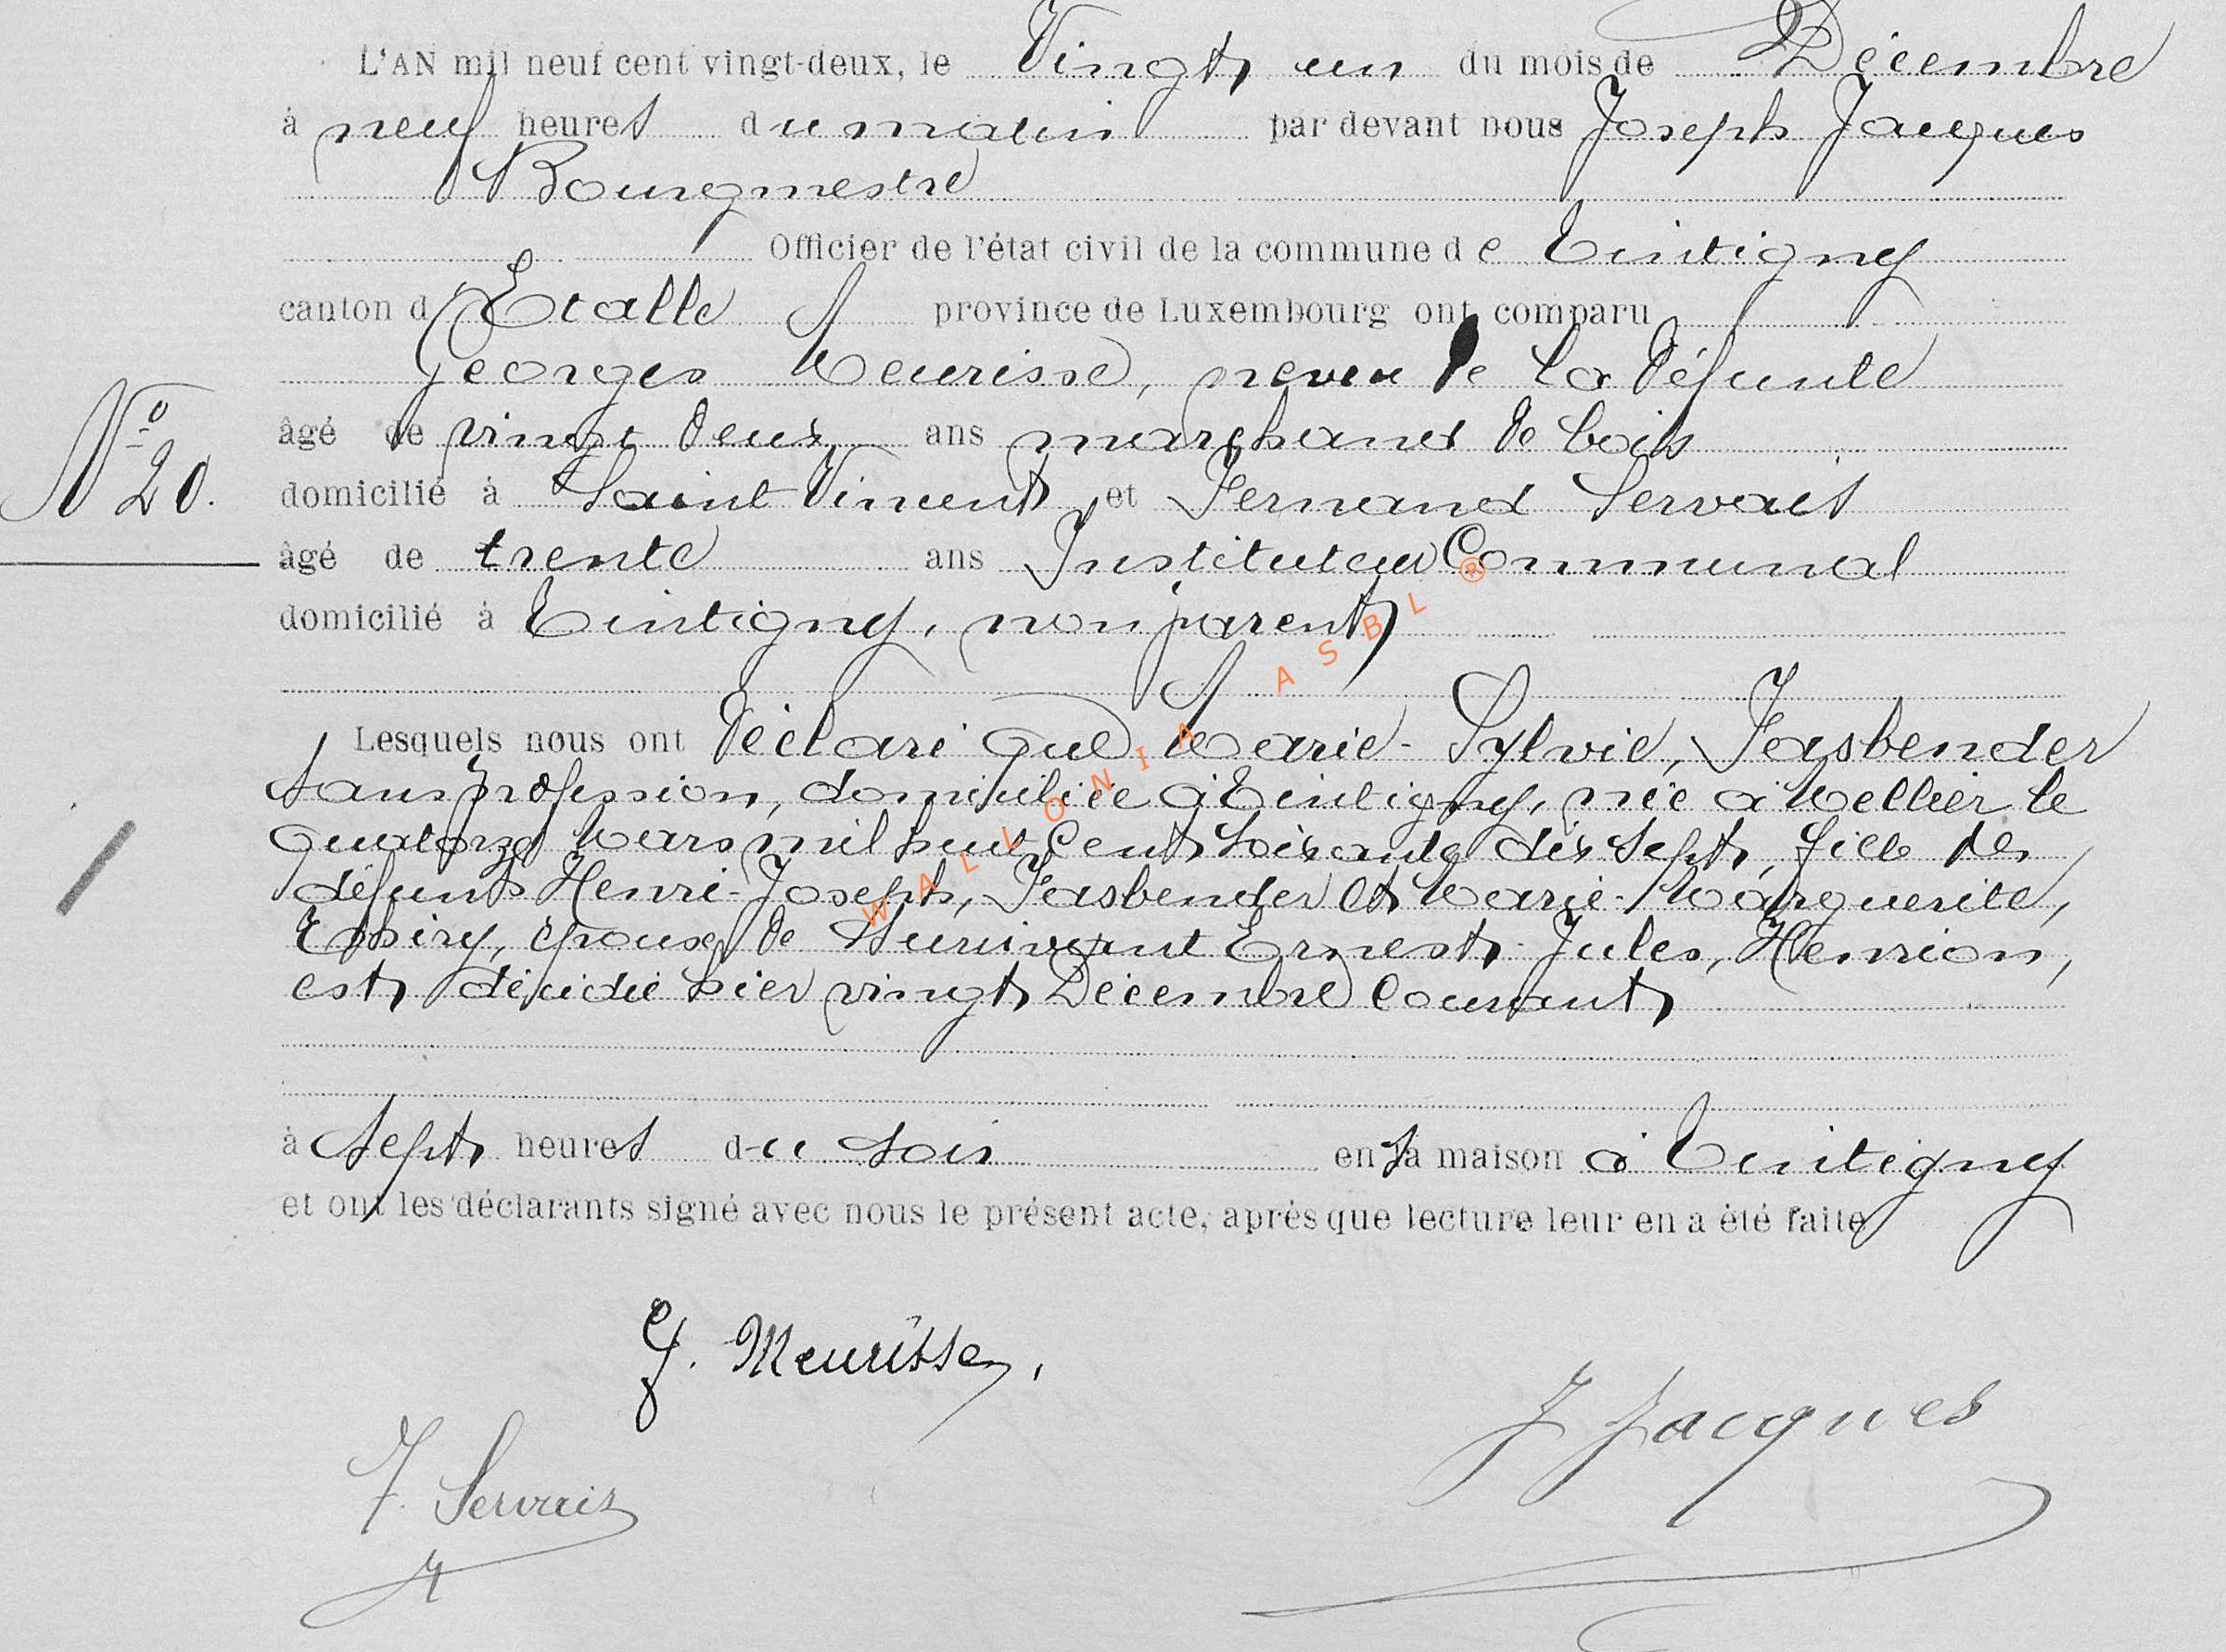 L'AN mil neuf cent vingt-deux, le Vingt un du mois de Décembre
à neuf heures du matin par devant nous Joseph Jacques
Bourgmestre
Officier de l'état civil de la commune de Tintigny
canton d'Etalle province de Luxembourg ont comparu
Georges Meurisse, neveu de la défunte
âgé de vingt deux ans marchand de bois
N° 20.
domicilié à Saint Vincent et Fernand Servais
âgé de trente ans Instituteur Communal
domicilié à Tintigny, non parent
Lesquels nous ont déclaré que Marie-Sylvie, Fasbender
sans profession, domiciliée à Tintigny, née à Mellier le
quatorze Mars mil huit cent soixante dix sept, fille des
défunts Henri-Joseph, Fasbender et Marie-Marguerite,
épouse de Survivant Ernest-Jules, Henrion,
est décédée hier vingt Décembre courant
à sept heures du soir en sa maison à Tintigny
et ont les déclarants signé avec nous le présent acte, après que lecture leur en a été faite
G. Meurisse,
J Jacques
F. Servais
WALLONIA ASBL ®